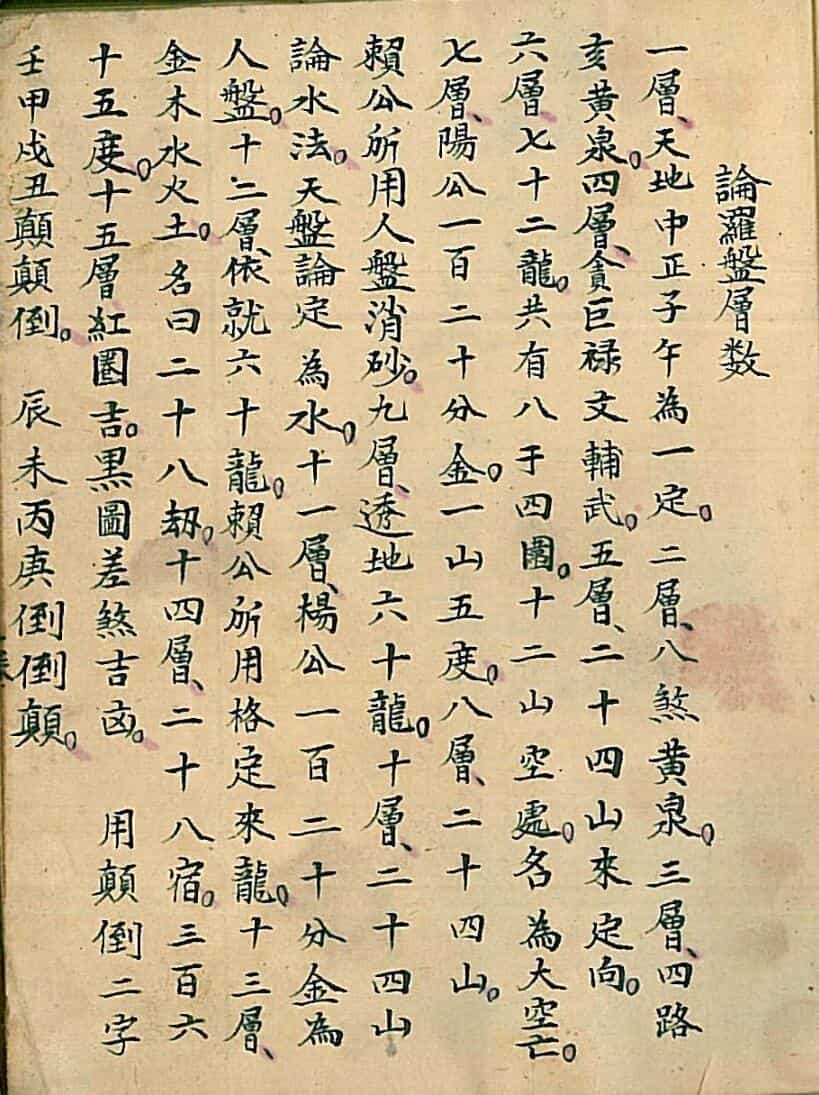 論羅盤層数
一層、天地中正子午為一定。二層、八煞黄泉。三層、四路
亥黄泉。四層、貪巨禄文輔武。五層、二十四山來定向。
六層、七十二龍。共有八于四圍。十二山空處。名為大空亡。
七層、陽公一百二十分金。一山五度。八層、二十四山。
賴公所用人盤消砂。九層、透地六十龍。十層、二十四山
論水法。天盤論定為水。十一層、楊公一百二十分金為
人盤。十二層、依就六十龍。賴公所用格定來龍。十三層、
金木水火土。名曰二十八刼。十四層、二十八宿。三百六
十五度。十五層紅圏吉。黒圖差煞吉凶。 用顛倒二字
壬甲戍丑顛顛倒。 辰未丙庚倒倒顛。